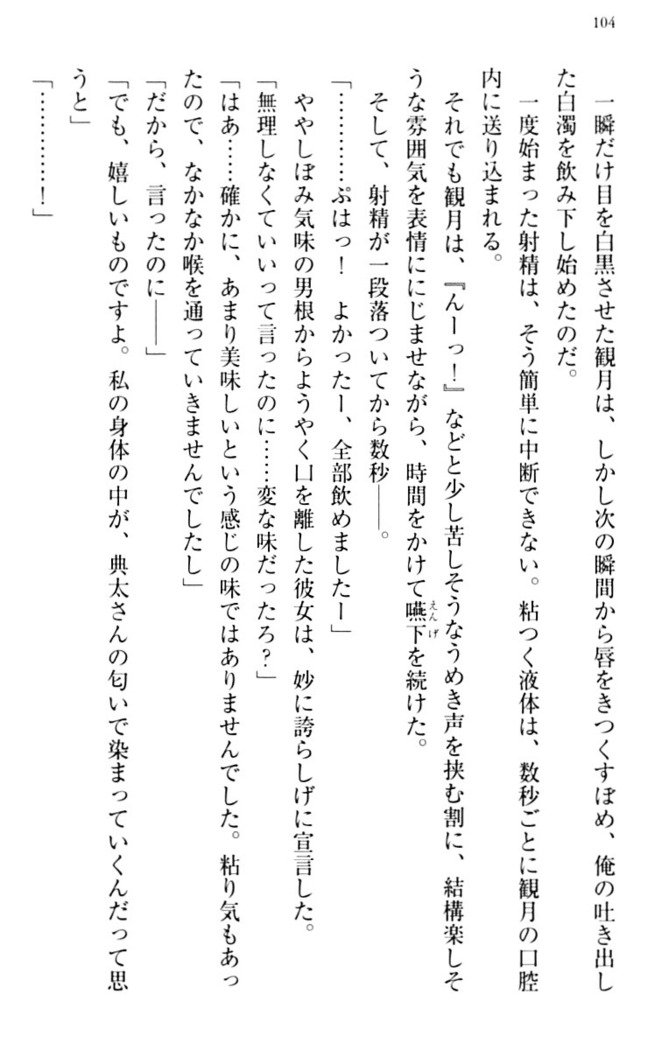 104
一瞬だけ目を白黒させた観月は、しかし次の瞬間から唇をきつくすぼめ、俺の吐き出し
た白濁を飲み下し始めたのだ。
一度始まった射精は、そう簡単に中断できない。粘つく液体は、数秒ごとに観月の口腔
内に送り込まれる。
それでも観月は、『んーっ！』などと少し苦しそうなうめき声を挟む割に、結構楽しそ
うな雰囲気を表情ににじませながら、時間をかけて嚥下えんげを続けた。
そして、射精が一段落ついてから数秒――。
「…………ぷはっ！　よかったー、全部飲めましたー」
ややしぼみ気味の男根からようやく口を離した彼女は、妙に誇らしげに宣言した。
「無理しなくていいって言ったのに……変な味だったろ？」
「はあ……確かに、あまり美味しいという感じの味ではありませんでした。粘り気もあっ
たので、なかなか喉を通っていきませんでしたし」
「だから、言ったのに――」
「でも、嬉しいものですよ。私の身体の中が、典太さんの匂いで染まっていくんだって思
うと」
「…………！」